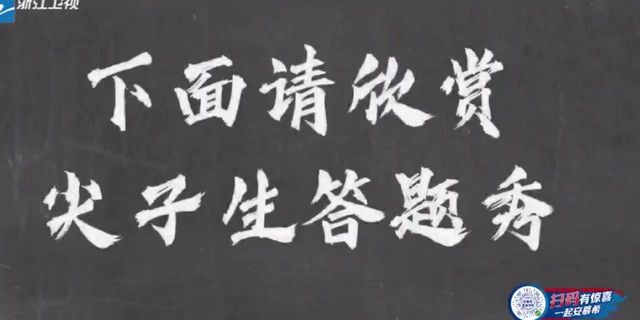 浙江卫视
下面请欣赏
尖子生答题秀
扫码有惊喜
一起安慕希